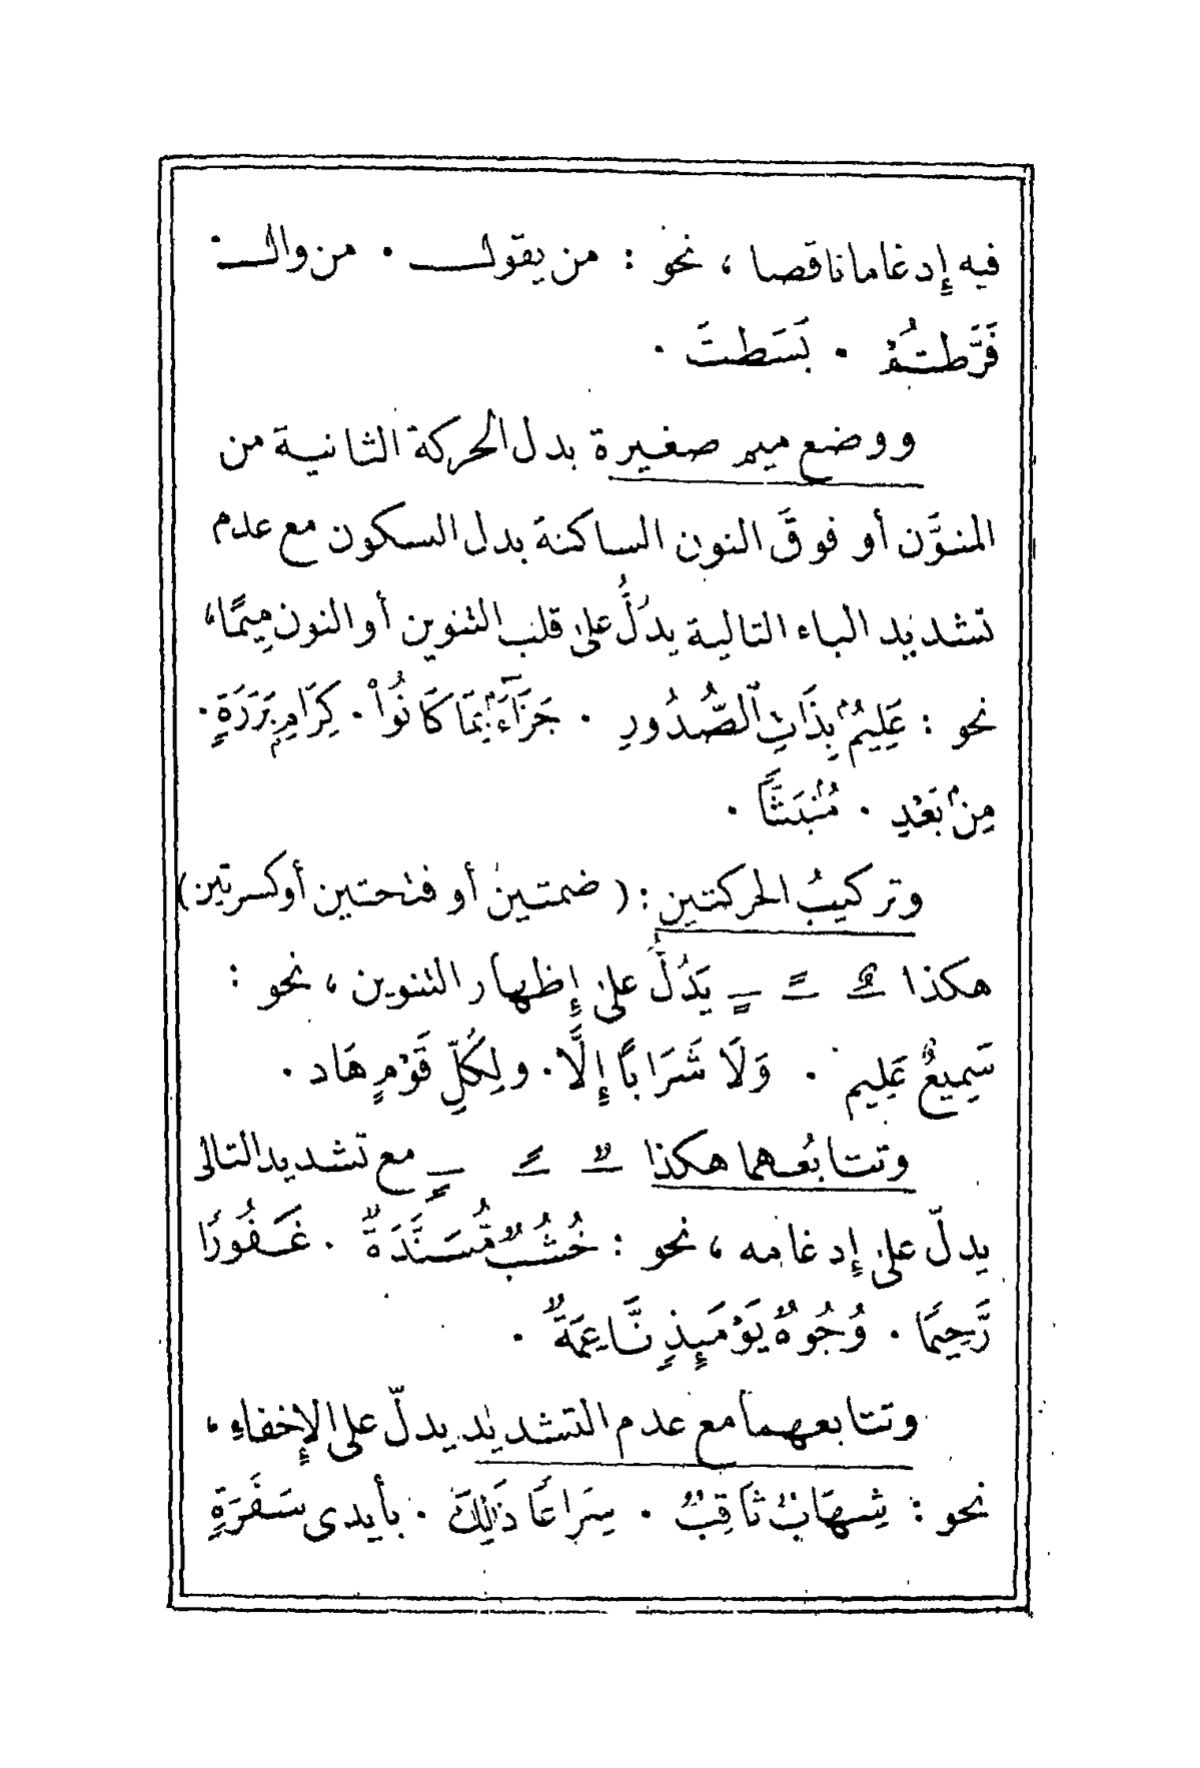 فيه إدغاما ناقصا ، نحو : من يقول . من وال .
فَرَّطتُمْ . بَسَطتَ .
ووضع ميم صغيرة بدل الحركة الثانية من
المنوَّن أو فوقَ النون الساكنة بدل السكون مع عدم
تشديد الباء التالية يدلُّ على قلب التنوين أو النون ميمًا ،
نحو : عَلِيمُۢ بِذَاتِ ٱلصُّدُورِ . جَزَآءَۢ بِمَا كَانُوا۟ . كِرَامِۭ بَرَرَةٍ .
مِنۢ بَعْدِ . مُنۢبَثًّا .
وتركيبُ الحركتين : ( ضمتين أو فتحتين أو كسرتين )
هكذا ـٌ ـً ـٍ يَدُلُّ على إظهار التنوين ، نحو :
سَمِيعٌ عَلِيم . وَلَا شَرَابًا إِلَّا . ولِكُلِّ قَوْمٍ هَاد .
وتتابُعهما هكذا ـٌ ـً ـٍ مع تشديد التالى
يدلّ على إدغامه ، نحو : خُشُبٌ مُّسَنَّدَةٌ . غَفُورًا
رَّحِيمًا . وُجُوهٌ يَوْمَئِذٍ نَّاعِمَةٌ .
وتتابعهما مع عدم التشديد يدلّ على الإخفاءِ ،
نحو : شِهَابٌ ثَاقِبٌ . سِرَاعًا ذَٰلِكَ . بأيدى سَفَرَةٍ